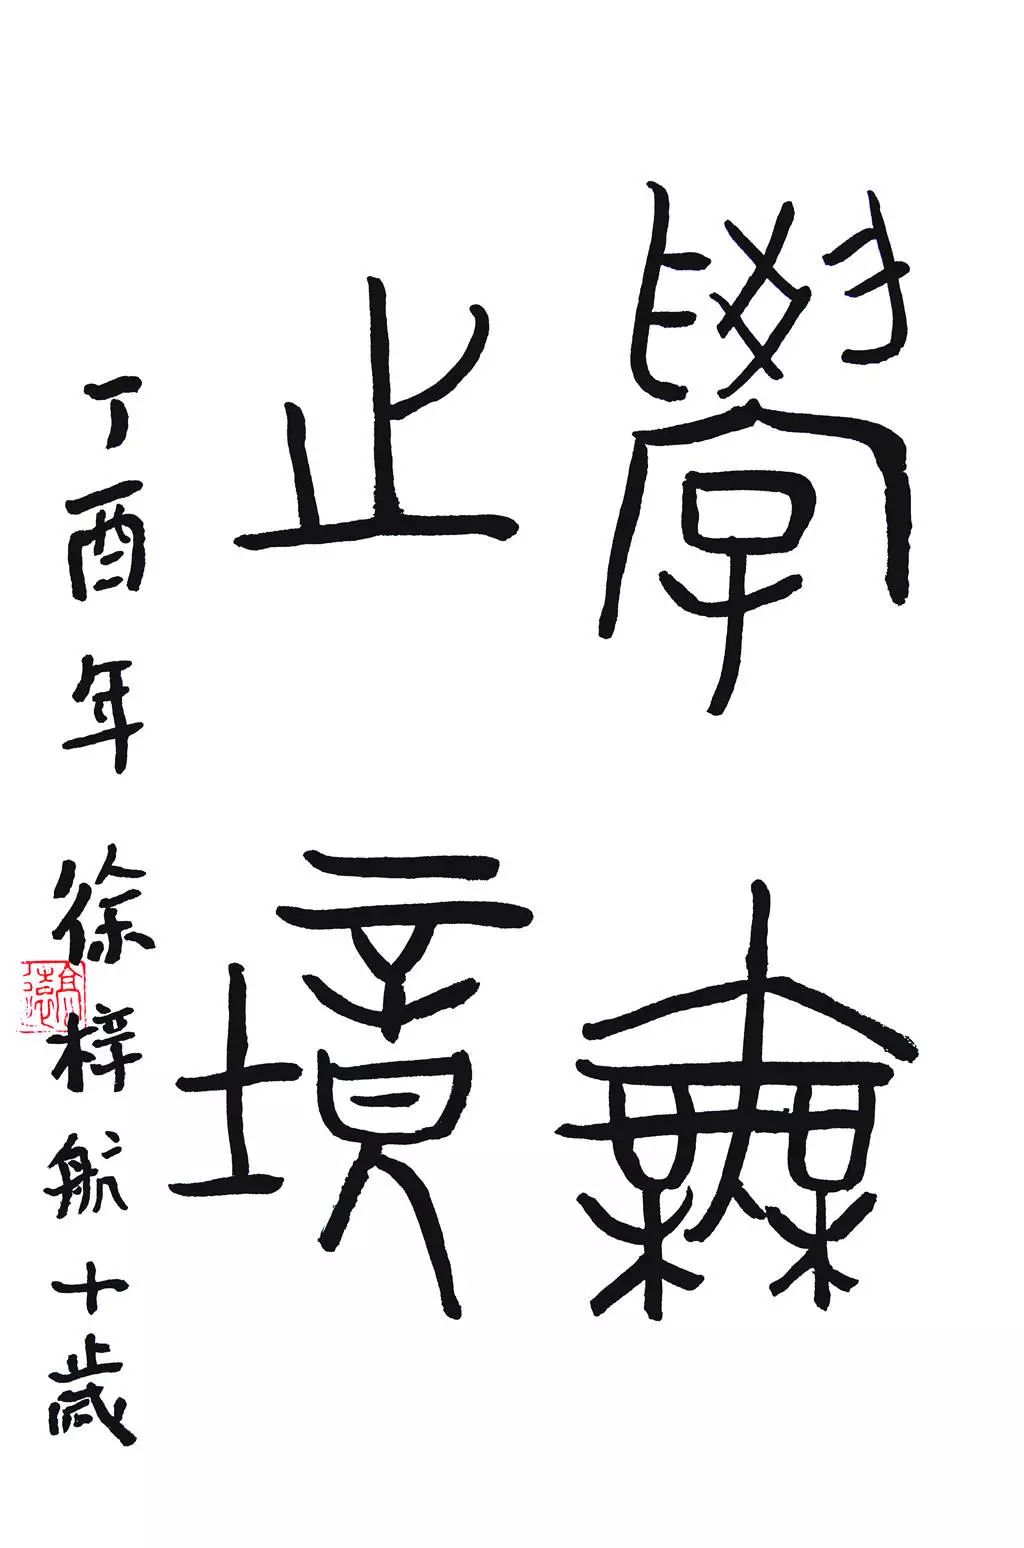 學無
止境
丁酉年徐梓航十歲